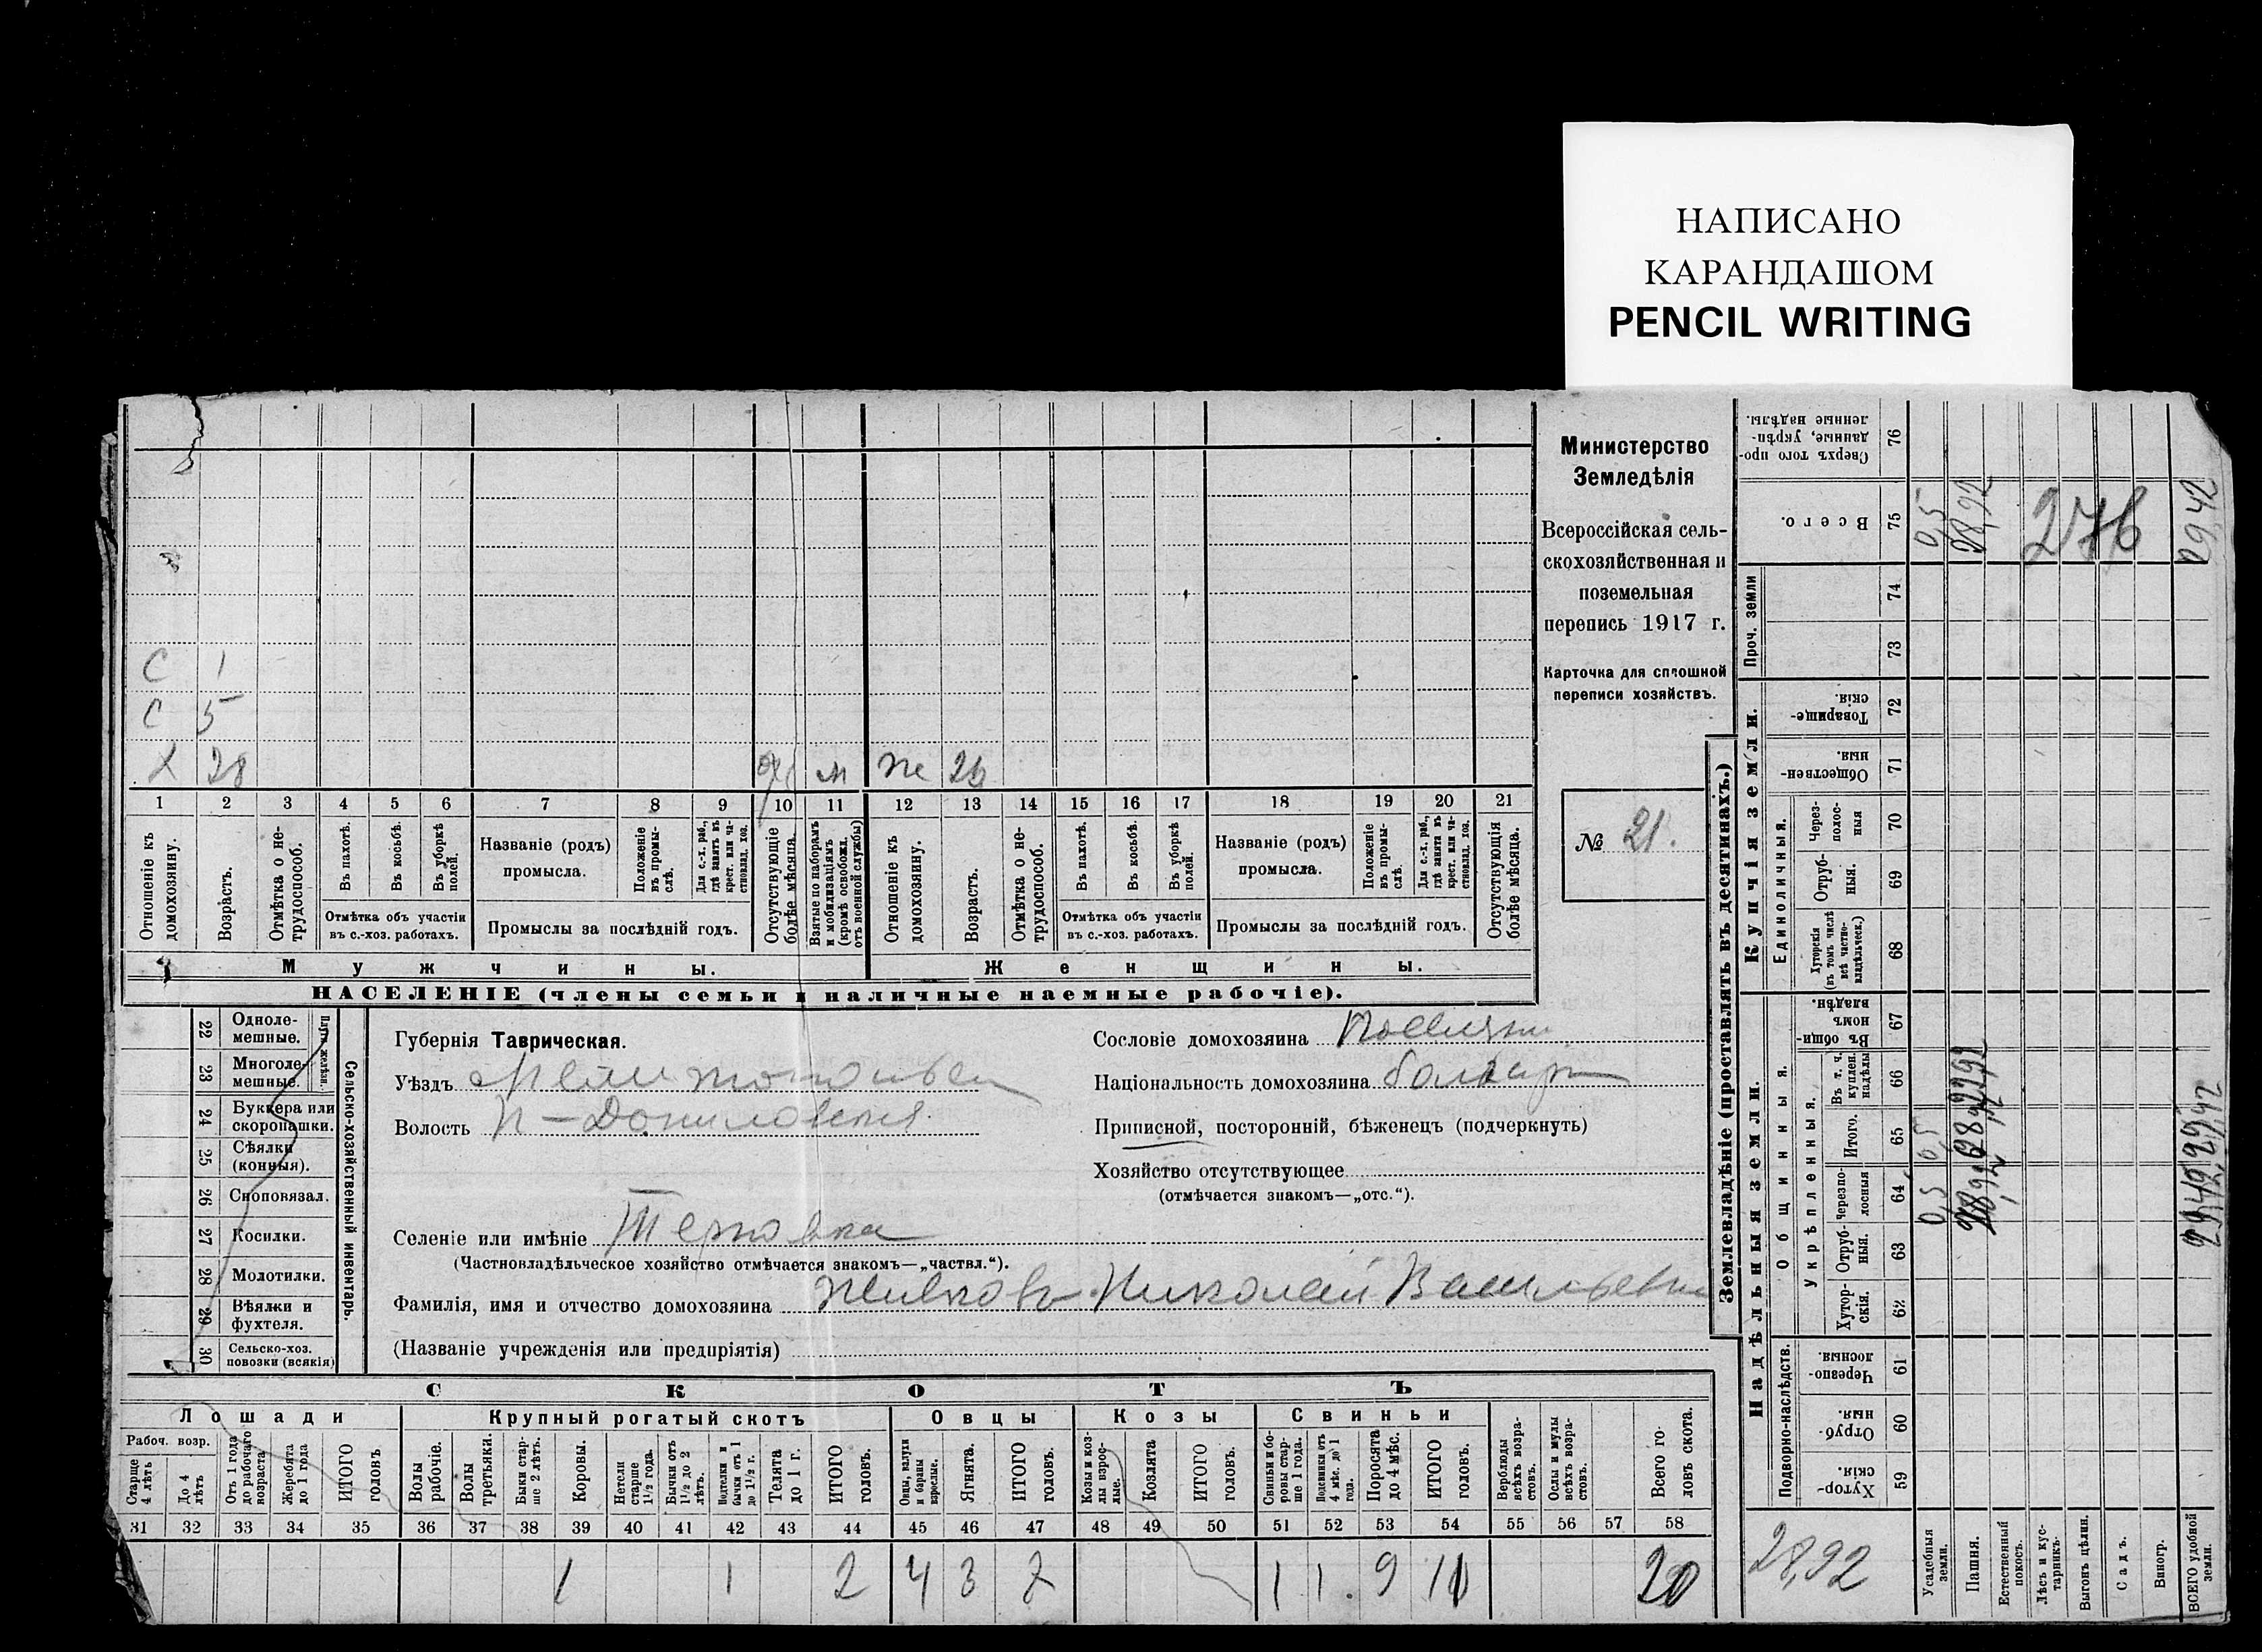 НАПИСАНО
КАРАНДАШОМ
PENCIL WRITING
Министерство
Земледѣлія
Всероссійская сель-
скохозяйственная и
поземельная
перепись 1917 г.
Карточка для сплошной
переписи хозяйствъ.
№ 21.
С 1
С 5
Х 28 м же
1 2 3 4 5 6 7 8 9 10 11 12 13 14 15 16 17 18 19 20 21
Отношеніе къ домохозяину.
Возрастъ.
Отмѣтка о не-трудоспособ.
Въ пахотѣ.
Въ косьбѣ.
Въ уборкѣ полей.
Отмѣтка объ участіи
въ с.-хоз. работахъ.
Названіе (родъ)
промысла.
Положеніе въ промы-слѣ.
Для с.-х. раб., гдѣ занятъ въ крест. или ча-стновлад. хоз.
Промыслы за послѣдній годъ.
Отсутствующіе болѣе мѣсяца.
Взятые по наборамъ и мобилизаціямъ (кромѣ освобожд. отъ военной службы)
Отношеніе къ домохозяину.
Возрастъ.
Отмѣтка о не-трудоспособ.
Въ пахотѣ.
Въ косьбѣ.
Въ уборкѣ полей.
Отмѣтка объ участіи
въ с.-хоз. работахъ.
Названіе (родъ)
промысла.
Положеніе въ промы-слѣ.
Для с.-х. раб., гдѣ занята въ крест. или ча-стновлад. хоз.
Промыслы за послѣдній годъ.
Отсутствующія болѣе мѣсяца.
Мужчины. Женщины.
НАСЕЛЕНІЕ (члены семьи и наличные наемные рабочіе).
22 Одноле-мешные.
23 Многоле-мешные.
Плуги желѣзн.
24 Буккера или скоропашки.
25 Сѣялки (конныя).
26 Сноповязал.
27 Косилки.
28 Молотилки.
29 Вѣялки и фухтеля.
30 Сельско-хоз. повозки (всякія)
Сельско-хозяйственный инвентарь.
Губернія Таврическая.
Уѣздъ
Волость
Селеніе или имѣніе Терновка
(Частновладѣльческое хозяйство отмѣчается знакомъ—„частвл.“).
Фамилія, имя и отчество домохозяина Живковъ Николай Васильевич
(Названіе учрежденія или предпріятія)
Сословіе домохозяина
Національность домохозяина болгар
Приписной, посторонній, бѣженецъ (подчеркнуть)
Хозяйство отсутствующее
(отмѣчается знакомъ—„отс.“).
СКОТЪ
Лошади
Крупный рогатый скотъ
Овцы
Козы
Свиньи
Рабоч. возр.
Старше 4 лѣтъ
До 4 лѣтъ
Отъ 1 года до рабочаго возраста
Жеребята до 1 года
ИТОГО головъ
Волы рабочіе.
Волы третьяки.
Быки стар-ше 2 лѣтъ.
Коровы.
Нетели старше 1½ года.
Бычки отъ 1½ до 2 лѣтъ.
Подтелки и бычки отъ 1 до 1½ г.
Телята до 1 г.
ИТОГО головъ.
Овцы, валухи и бараны взрослые.
Ягнята.
ИТОГО головъ.
Козы и коз-лы взрос-лые.
Козлята
ИТОГО головъ.
Свиньи и бо-ровы стар-ше 1 года.
Подсвинки отъ 4 мѣс. до 1 года.
Поросята до 4 мѣс.
ИТОГО головъ.
Верблюды всѣхъ возра-стовъ.
Ослы и мулы всѣхъ возра-стовъ.
Всего го-ловъ скота.
31 32 33 34 35 36 37 38 39 40 41 42 43 44 45 46 47 48 49 50 51 52 53 54 55 56 57 58
1 1 2 4 3 7 1 1 9 11 20
Землевладѣніе (проставлять въ десятинахъ.)
Надѣльныя земли.
Купчія земли.
Проч. земли
Подворно-наслѣдств.
Общинныя.
Укрѣпленныя.
Единоличныя.
Хутор-скія. 59
Отруб-ныя. 60
Черезпо-лосныя. 61
Хутор-скія. 62
Отруб-ныя. 63
Черезпо-лосныя 64
Итого. 65
Въ т. ч. куплен. надѣлы 66
Въ общи-номъ владѣн. 67
Хуторскія (въ томъ числѣ всѣ частно-владѣльческ.) 68
Отруб-ныя. 69
Через-полос-ныя 70
Обществен-ныя. 71
Товарище-скія. 72
73
74
Всего. 75
Сверхъ того про-данные, укрѣп-ленные надѣлы. 76
Усадебныя земли.
Пашня.
Естественный покосъ.
Лѣсъ и кус-тарникъ.
Выгонъ цѣлин.
Садъ.
Виногр.
ВСЕГО удобной земли.
28,92
0,5 0,5 0,5
28,92
29,42
276